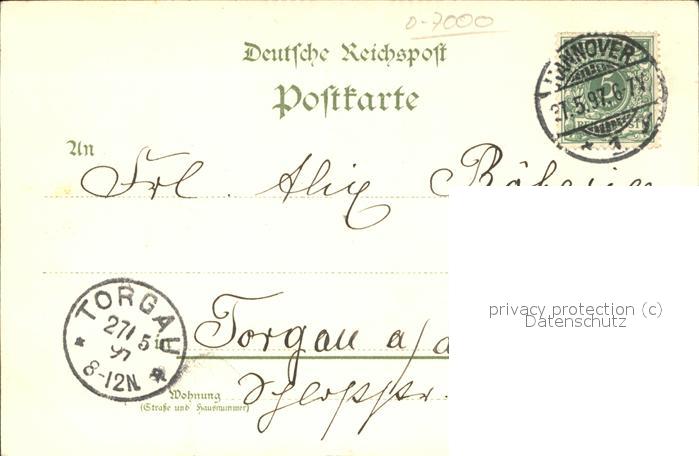 D-7000
Deutsche Reichspost
Postkarte
HANNOVER
27.5.97.6-7N
* 1 *
5
An
Frl. Alix
Torgau a/d
TORGAU
27/5
97
8-12N.
Wohnung
(Straße und Hausnummer)
Schloßstr.
privacy protection (c)
Datenschutz